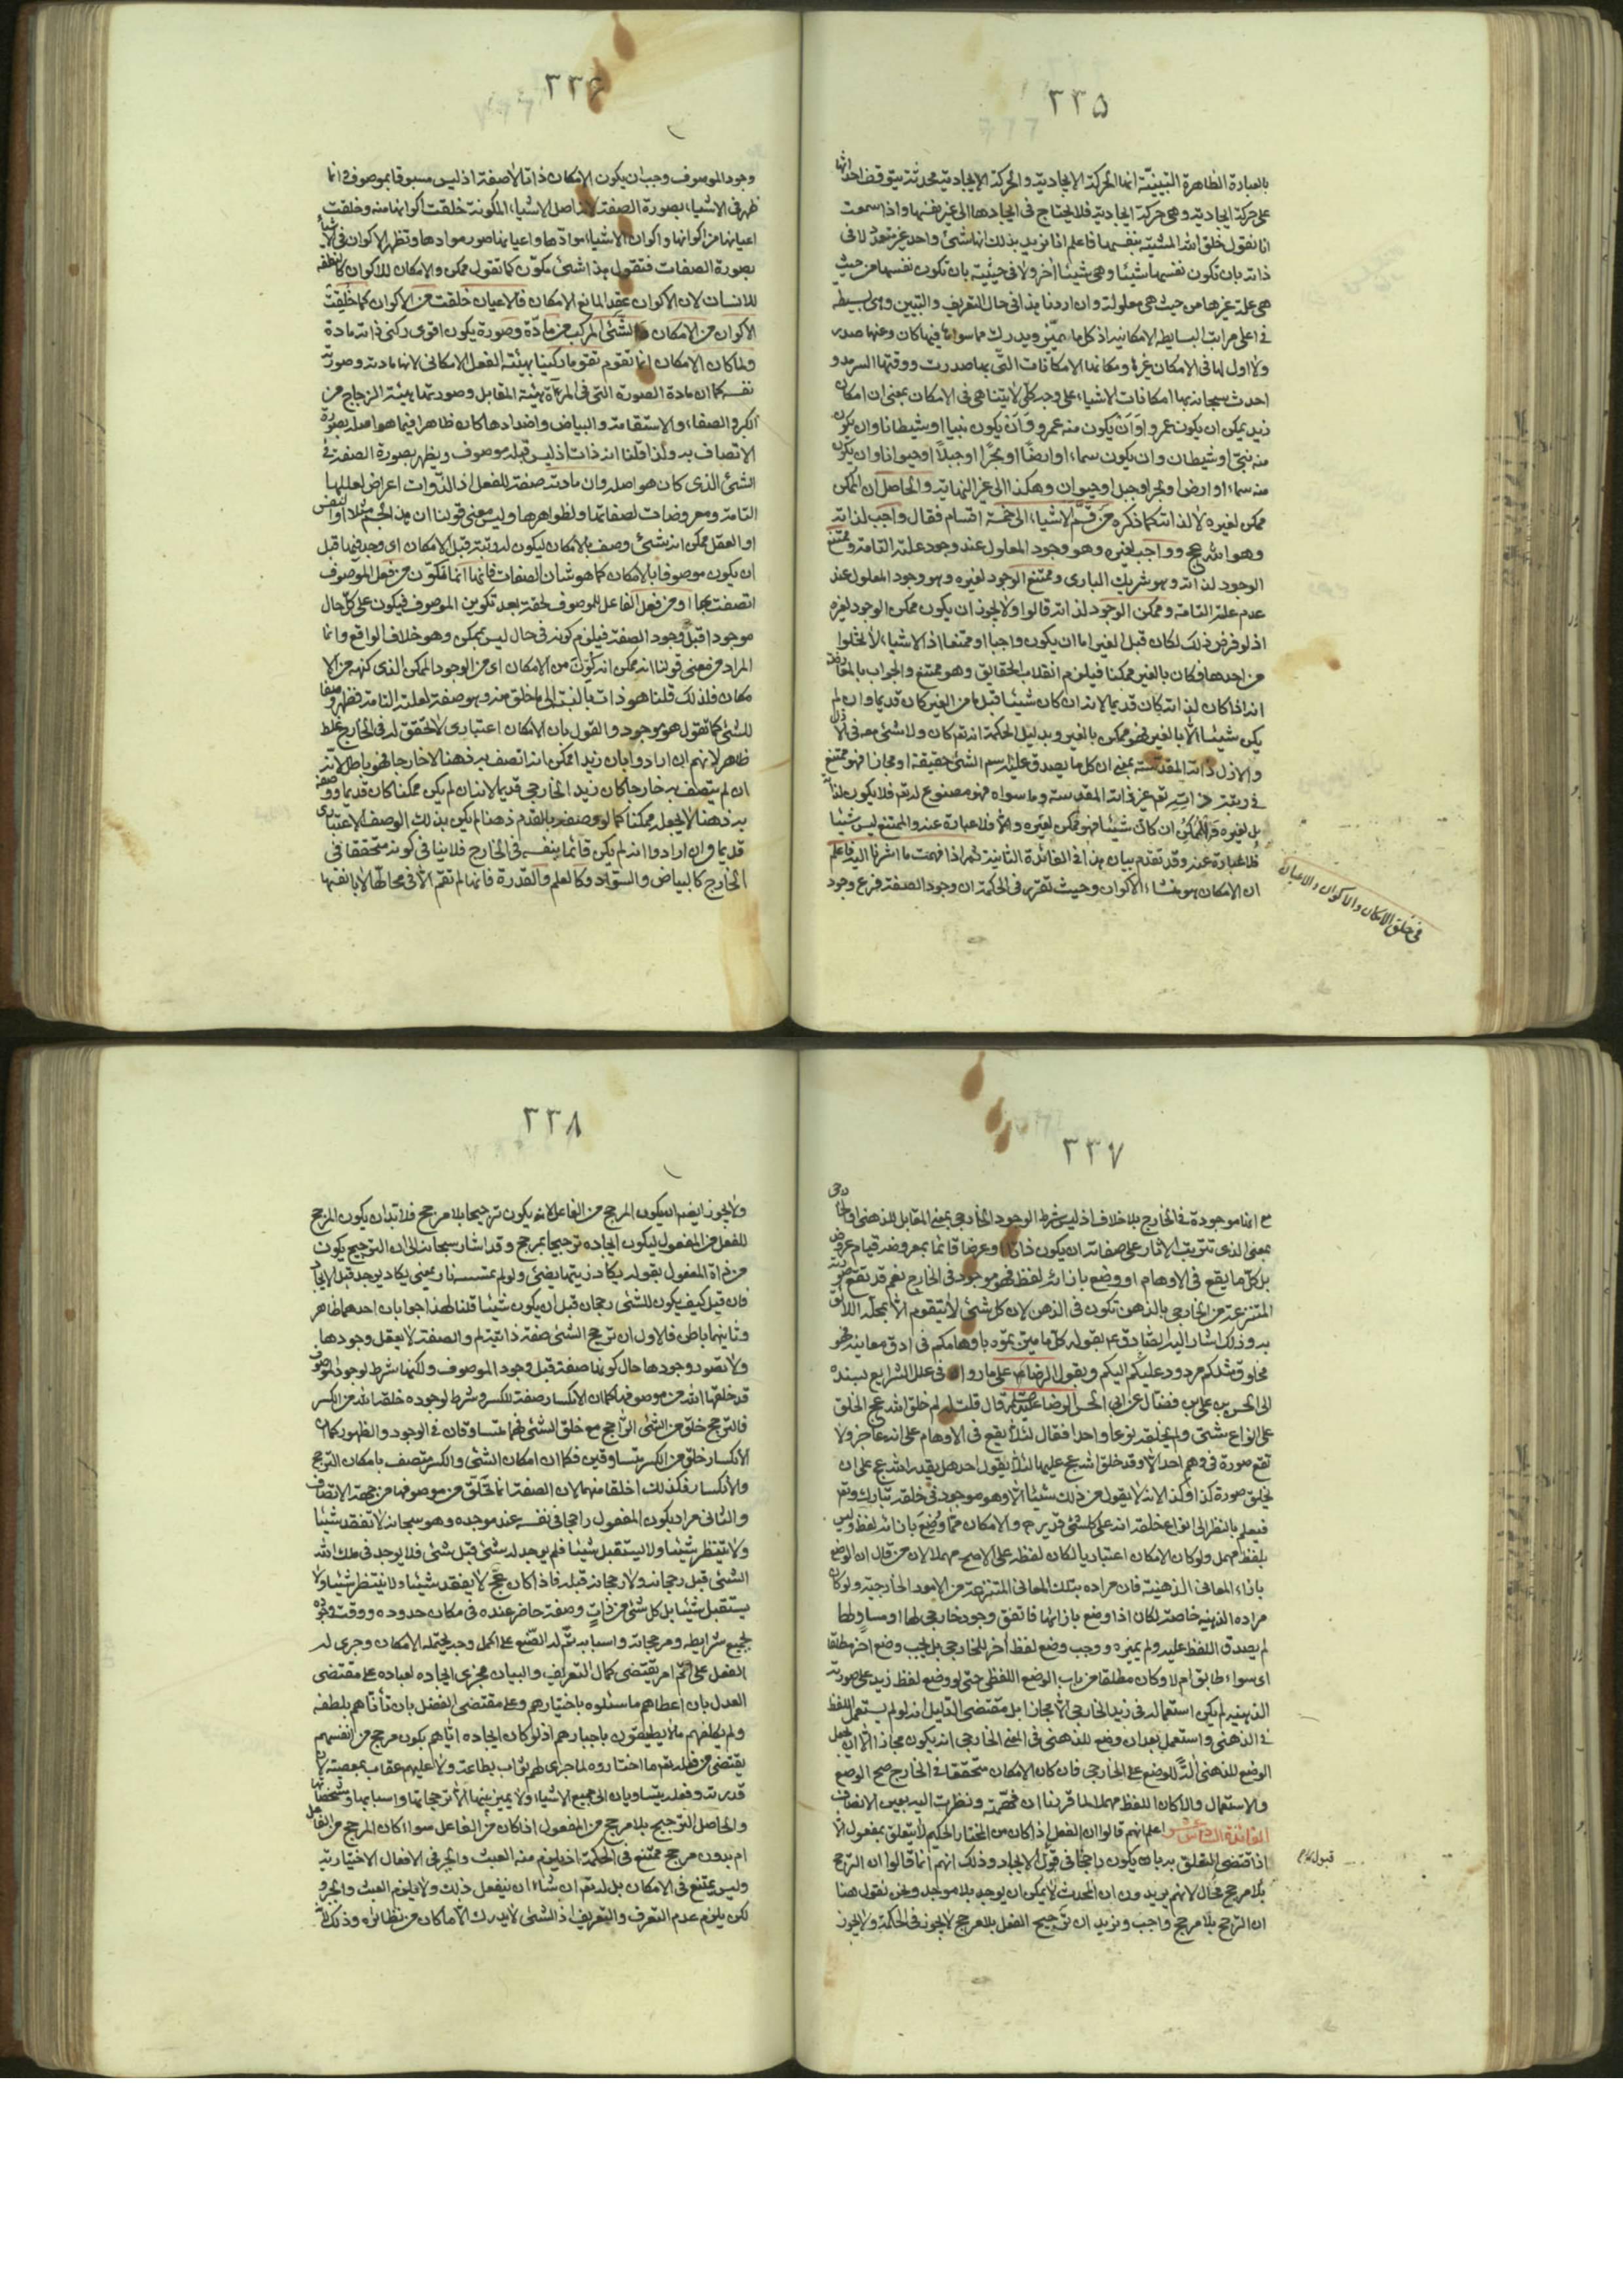 ٣٣٥
بالعبارة الظاهرة التبيينيّة انها الحركة الايجادية والحركة الايجادية محدثة يتوقف احداثها
على حركة ايجادية وهى حركة ايجادية فلا يحتاج فى ايجادها الى غير نفسها واذا سمعت
انا نقول خلق الله المشيّة بنفسها فاعلم انا نريد بذلك انها شئ واحد غير متعدّد لا فى
ذاته بان تكون نفسها شيئا وهى شيئا اٰخر ولا فى حيثيته بان تكون نفسها من حيث
هى علة غيرها من حيث هى معلولة وان اردنا بهذا فى حال التعريف والتبيين وهى بسيطة
فى اعلى مراتب البساطة الامكانية اذ كل ما يميّز ويدرك مما سواها فيها كان وعنها صدر
ولا اول لها فى الامكان غيرها ومكانها الامكانات التّى بها صدرت ووقتها السرمد و
احدث سبحانه بها امكانات الاشياء على وجه كلىّ لا يتناهى فى الامكان بمعنى ان امكان
زيد يمكن ان يكون عمرو اَوَ اَنْ يكون منه عمرو وَ اَنْ يكون نبيا او شيطانا وان يكون
منه نبىّ او شيطان وان يكون سماء او ارضًا او بحرًا او جبلًا او حيوانا وان يكون
منه سماء او ارض او بحر او جبل او حيوان وهكذا الى غير النهاية والحاصل ان الممكن
ممكن لغيره لا لذاته كما ذكره مَن قَسَّمَ الاشياء الى خمسة اقسام فقال واجب لذاته
وهو الله عج وواجب لغيره وهو وجود المعلول عند وجود علته التامة وممتنع
الوجود لذاته وهو شريك البارى وممتنع الوجود لغيره وهو وجود المعلول عند
عدم علته التامة وممكن الوجود لذاته قالوا ولا يجوز ان يكون ممكن الوجود لغيره
اذ لو فرض ذلك لكان قبل الغير اما ان يكون واجبا او ممتنعا اذ الاشياء لا تخلوا
من احدها فكان بالغير ممكنا فيلزم انقلاب الحقايق وهو ممتنع والجواب بالمعارضة
انه اذا كان لذاته كان قديما لانه ان كان شيئا قبل ما من الغير كان قديما وان لم
يكن شيئا الّا بالغير فهو ممكن بالغير وبدليل الحكمة انه تعم كان ولا شئ معه فى الازل
والازل ذاته المقدّسة بمعنى ان كل ما يصدق عليه اسم الشئ حقيقة او مجازا فهو ممتنع
فى رتبة ذاتِهِ تعم غير ذاته المقدسة وما سواه فهو مصنوع له تعم فلا يكون لذاته
بل لغيره فَالْمُمكِنُ ان كان شيئا فهو ممكن لغيره والّا فلا عبارة عنه والممتنع ليس شيئا
فلا عبارة عنه وقد تقدم بيان هذا فى الفائدة الثانية ثم اذا فهمت ما اشرنا اليه فاعلم
ان الامكان هو منشاء الاكوان وحيث تقرّر فى الحكمة ان وجود الصفة فرع وجود
فى خلق الامكان والاكوان والاعيان
٣٣۶
وجود الموصوف وجب ان يكون الامكان ذاتا لا صفة اذ ليس مسبوقا بموصوف وانما
ظهر فى الاشياء بصورة الصفة لانه اصل الاشياء المكونة خلقت اكوانها منه وخلقت
اعيانها من اكوانها واكوان الاشياء موادّها واعيانها صور موادها وتظهر الاكوان فى الاشياء
بصورة الصفات فتقول هذا شئ مكوّن كما تقول ممكن والامكان للاكوان كالنطفة
للانسان لان الاكوان عقد المانع الامكان فالاعيان خلقت من الاكوان كما خُلِقَتْ
الاكوان من الامكان والشّئ المركب من مادّة وصورة يكون اقوى ركنى ذاته مادة
ولما كان الامكان انما تقوم تقوما ركنيا بهيئة الفعل الامكانى لانها مادته وصورته
نفسه كما ان مادة الصورة التى فى المرءآة هيئة المقابل وصورتها هيئة الزجاج من
الكبر والصفاء والاستقامة والبياض واضدادها كان ظاهرا فيما هو اصله بصورة
الاتصاف به ولذا قلنا انه ذات اذ ليس قبله موصوف ويظهر بصورة الصفة فى
الشئ الذى كان هو اصله وان مادته صفة للفعل اذ الذّوات اعراض لعللها
التامة ومعروضات لصفاتها ولظواهرها وليس معنى قولنا ان هذا الجسم مثلا او النفس
او العقل ممكن انه شئ وصف بالامكان ليكون له رتبة قبل الامكان اى وجد فيها قبل
ان يكون موصوفا بالامكان كما هو شان الصفات فانها انما تتكوّن من فعل الموصوف
اتصفت بها او من فعل الفاعل للموصوف لحقته بعد تكوين الموصوف فيكون على كلّ حال
موجودا قبل وجود الصفة فيلزم كونه فى حال ليس بممكن وهو خلاف الواقع وانما
المراد من معنى قولنا انه ممكن انه كُوِّنَ من الامكان اى من الوجود الممكن الذى كنهه من الا
مكان فلذلك قلنا هو ذات بالنسبة الى ما خلق منه وهو صفة لعلته التامة فظهر وصفا
للشئ كما تقول هو موجود والقول بان الامكان اعتبارى لا تحقق له فى الخارج غلط
ظاهر لانهم ان ارادوا بان زيدا ممكن انه اتصف به ذهنا لا خارجا فهو باطل لانه
ان لم يتصف به خارجا كان زيد الخارجى قديما لانه ان لم يكن ممكنا كان قديما ووصفه
به ذهنا لا يجعله ممكنا كما لو وصفته بالقدم ذهنا لم يكن بذلك الوصف الاعتبارى
قديما وان ارادوا انه لم يكن قائما بنفسه فى الخارج فلا ينافى كونه متحققا فى
الخارج كالبياض والسّواد وكالعلم والقدرة فانها لم تقم الّا فى محالّها لا بانفسها
٣٣٧
مع انها موجودة فى الخارج بلا خلاف اذ ليس شرط الوجود الخارجى بمعنى المقابل للذهنى او الخارجى
بمعنى الذى تترتب الاثار على صفاته ان يكون ذاتا او عرضا قائما بمعروضه قيام عروض
بل كل ما يقع فى الاوهام او وضع بازائه لفظ فهو موجود فى الخارج نعم قد تقع صورته
المنتزعة من الخارجى بالذهن تكون فى الذهن لان كل شئ لا يتقوم الّا بمحلّه اللائق
به وذلك اشار اليه الصّادق ع بقوله كلّ ما ميّزتموه باوهامكم فى ادق معانيه فهو
مخلوق مثلكم مردود عليكُم اليكم وبقول الرضا ع على ما رواه فى علل الشرايع بسنده
الى الحسن بن على بن فضال عن ابى الحسن الرضا عليه السلام قال قلت له لم خلق الله عج الخلق
على انواع شتى ولم يخلقه نوعا واحدا فقال لئلّا يقع فى الاوهام على انه عاجز ولا
تقع صورة فى وهم احد الّا وقد خلق الله عج عليها لئلا يقول احد هل يقدر الله عج على ان
يخلق صورة كذا وكذا لانه لا يقول من ذلك شيئا الّا وهو موجود فى خلقه تبارك وتعم
فيعلم بالنظر الى انواع خلقه انه على كل شئ قدير والامكان ممّا وُضِعَ بازائه لفظ وليس
بلفظ مهمل ولو كان الامكان اعتباريا لكان لفظه على الاصح مهملا لان من قال ان الوضع
بازاء المعانى الذهنية فان مراده بتلك المعانى المنتزعة من الامور الخارجية ولو كان
مراده الذهنية خاصة لكان اذا وضع بازائها فاتفق وجود خارجى لها او مساوٍ لها
لم يصدق اللفظ عليه ولم يميزه ووجب وضع لفظ اٰخر للخارجى بل يجب وضع اٰخر مطلقا
اى سواء طابق ام لا وكان مطلقا من باب الوضع اللفظى حتى لو وضع لفظ زيد على صورته
الذهنية لم يكن استعماله فى زيد الخارجى الّا مجازا بل مقتضى الدليل انه لو لم يستعمل اللفظ
فى الذهنى واستعمل بعد ان وضع للذهنى فى المعنى الخارجى انه يكون مجازا الّا ان يجعل
الوضع للذهنى اٰلةً للوضع على الخارجى فان كان الامكان متحققا فى الخارج صح الوضع
والاستعمال والّا كان اللفظ مهملا لما قررنا ان فهّمته ونظرت اليه بعين الانصاف
الفائدة اعلم انهم قالوا ان الفعل اذا كان من المختار الحكيم لا يتعلق بمفعول الّا
اذا اقتضى التعلق به بان يكون راجحا فى قبول الايجاد وذلك انهم انما قالوا ان الترجح
بلا مرجح محال لانهم يريدون ان المحدث لا يمكن ان يوجد بلا موجد ونحن نقول هنا
ان الترجح بلا مرجح واجب ونريد ان ترجيح الفعل بلا مرجح لا يجوز فى الحكمة ولا يجوز
٣٣٨
ولا يجوز ايضا ان يكون المرجح من الفاعل لانه يكون ترجيحا بلا مرجح فلا بدّ ان يكون المرجح
للفعل من المفعول ليكون ايجاده ترجيحا بمرجح وقد اشار سبحانه الى ان الترجيح يكون
من ذات المفعول بقوله يكاد زيتها يضئ ولو لم تمسسه نار يعنى يكاد يوجد قبل الايجاد
فان قيل كيف يكون للشئ رجحان قبل ان يكون شيئا قلنا لهذا جوابان احدهما ظاهر
وثانيهما باطن فالاول ان ترجح الشئ صفة ذاتية له والصفة لا يعقل وجودها
ولا تصور وجودها حال كونها صفة قبل وجود الموصوف ولكنها شرط لوجود الموصوف
قد خلقها الله من موصوفها كما ان الانكسار صفة للكسر وشرط لوجوده خلقه الله من الكسر
فالترجح خلق من الشئ الرّاجح مع خلق الشئ فهما متساوقان فى الوجود والظهور كما ان
الانكسار خلق من الكسر متساوقين فكما ان امكان الشئ والكسر متصف بامكان الترجح
والانكسار فكذلك اخلقا منهما لان الصفة انما تُخلَق من موصوفها من جهة الاتصاف
والثانى مراد بكون المفعول راجحا فى نفسه عند موجده وهو سبحانه لا تفقد شيئا
ولا ينتظر شيئا ولا يستقبل شيئا فلم يوجد له شئ قبل شئ فلا يوجد فى ملك الله
الشئ قبل رجحانه ولا رجحانه قبله فاذا كان عج لا يفقد شيئا ولا ينتظر شيئا ولا
يستقبل شيئا بل كل شئ من ذاتٍ وصفة حاضر عنده فى مكان حدوده ووقت وجوده
بجميع شرايطه ومرجحاته واسبابه تمّ له الصّنع على اكمل وجه يحتمله الامكان وجرى له
الفعل على اتمّ امر يقتضى كمال التعريف والبيان مجرى ايجاده لعباده على مقتضى
العدل بان اعطاهم ما سئلوه باختيارهم وعلى مقتضى الفضل بان تأتاهم بلطفه
ولم يكلفهم ما لا يطيقون باجبارهم اذ لو كان ايجاده ايّاهم بكون مرجح من انفسهم
يقتضى من فعله تعم ما اختاروه لما جرى لهم ثواب بطاعة ولا عليهم عقاب بمعصية لان
قدرته وفعله يتساويان الى جميع الاشياء ولا يميز بينها الّا ترجحاتها واسبابها ومشخصاتها
والحاصل الترجيح بلا مرجح من المفعول اذا كان من الفاعل سواء كان المرجح من الفاعل
ام بدون مرجح ممتنع فى الحكمة اذ يلزم منه العبث والجبر فى الافعال الاختيارية
وليس بممتنع فى الامكان بل له تعم ان شاء ان يفعل ذلك ولا يلزم العبث والجبر و
لكن يلزم عدم التعرف والتعريف اذ الشئ لا يدرك الّا ما كان من نظائره وذلك